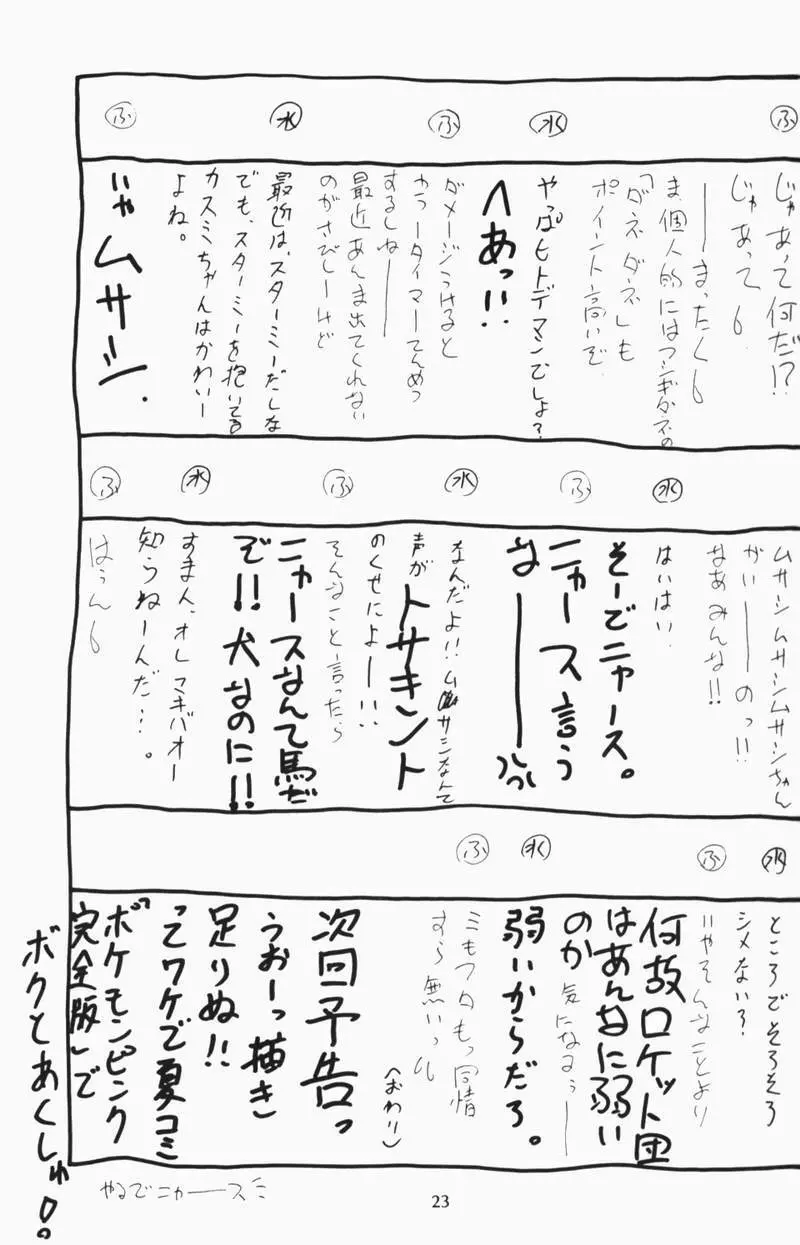 ふ
じゃあって何だ!?
じゃあってら
──まったくら
ま、個人的にはフシギダネの
「ダネダネ」も
ポイント高いぞ
水
やっぱヒトデマンでしょ?
へあっ!!
ふ
ダメージうけると
カラータイマーてんめつ
するしねー──
最近あんま出てくれない
のがさびしーけど
水
最近は、スターミーだしな
でも、スターミーを抱いてる
カスミちゃんはかわいー
よね。
ふ
いや ムサシ.
ムサシムサシムサシちゃん
がいー──のっ!!
なあみんな!!
水
はいはい
そーでニャース。
ふ
ニャース言う
なー──
水
なんだよ!!ムサシなんて
声がトサキント
のくせによー!!
ふ
そんなこと言ったら
ニャースなんて馬だ
ぞ!!犬なのに!!
水
すま人、オレマキバオー
知らねーんだ…。
ふ
はぅんら
水
ところでそろそろ
シメない?
ふ
いやそんなことより
何故ロケット団
はあんなに弱い
のか気になるぅ──
水
弱いからだろ。
ふ
ミもフタもっ同情
すら無いっ
(おわり)
次回予告っ
うおーっ描き
足りぬ!!
ってワケで夏コミ
「ポケモンピンク
完全版」で
ボクとあくしゅ!
やるでニャー──ス
23